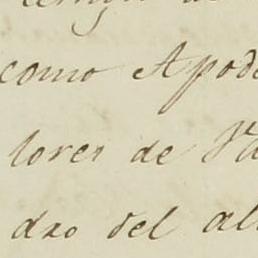 como Apod
lores de Va
dro del al